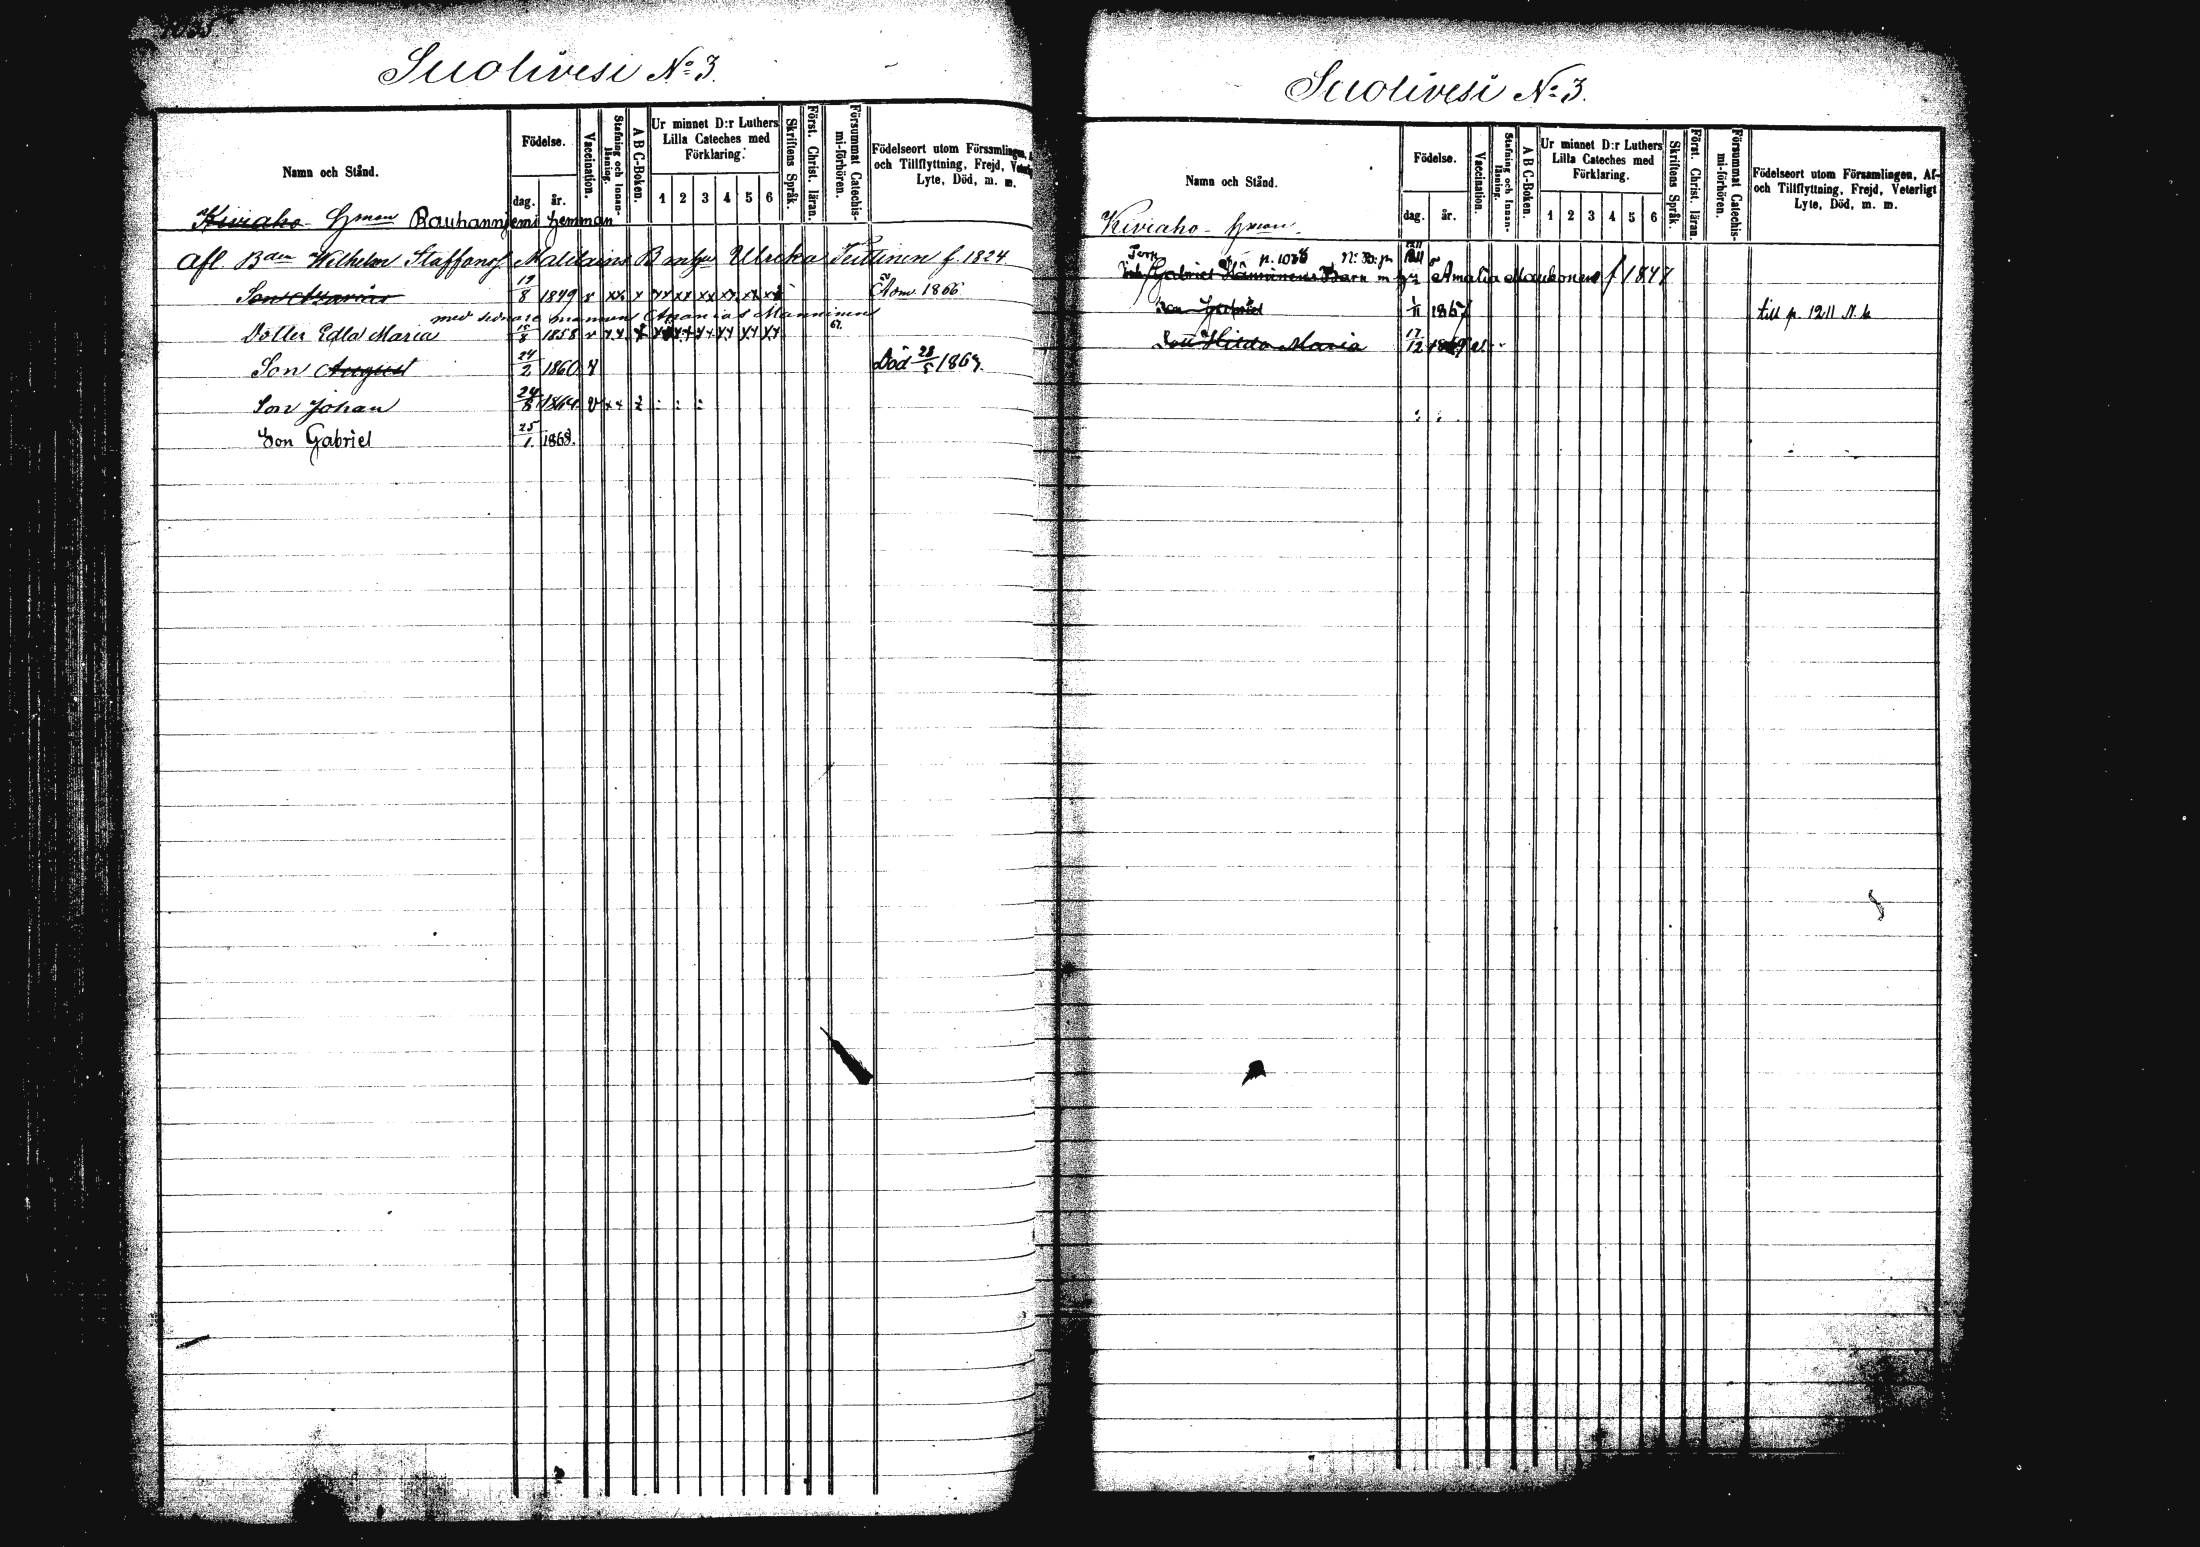 Suolivesi No 3.
Namn och Stånd.
Födelse.
dag.
år.
Vaccination.
Stafning och Innan-läsning.
A B C-Boken.
Ur minnet D:r Luthers
Lilla Cateches med
Förklaring.
1 2 3 4 5 6
Skriftens Språk.
Först. Christ. läran.
Försummat Catechis-
mi-förhören.
Födelseort utom Församlingen,
och Tillflyttning, Frejd,
Lyte, Död, m. m.
Kiviaho Hman Rauhanniemi hemman
Afl Bden Wilhelm Staffansf Malilains B m hu Ulrika f. 1824
Son 19/8 1849 v xx x xx xx xx xx xx xx Adm 1866
med sednare mannen Ananias Manninen
Dotter Edla Maria 15/8 1858 v xx x xx xx xx xx xx xx 67.
Son August 24/2 1860 v Död 28/5 1868.
Son Johan 24/8 1864 v xx
Son Gabriel 25/1. 1868.
Suolivesi No 3.
Namn och Stånd.
Födelse.
dag.
år.
Vaccination.
Stafning och Innan-läsning.
A B C-Boken.
Ur minnet D:r Luthers
Lilla Cateches med
Förklaring.
1 2 3 4 5 6
Skriftens Språk.
Först. Christ. läran.
Försummat Catechis-
mi-förhören.
Födelseort utom Församlingen, Af-
och Tillflyttning, Frejd, Veterligt
Lyte, Död, m. m.
Kiviaho Hman.
Gabriel Barn m Amalia Maukonen f 1847
Son Gabriel 1/11 1867 till p. 1211 N. b
Dott Hilda Maria 17/12 1869